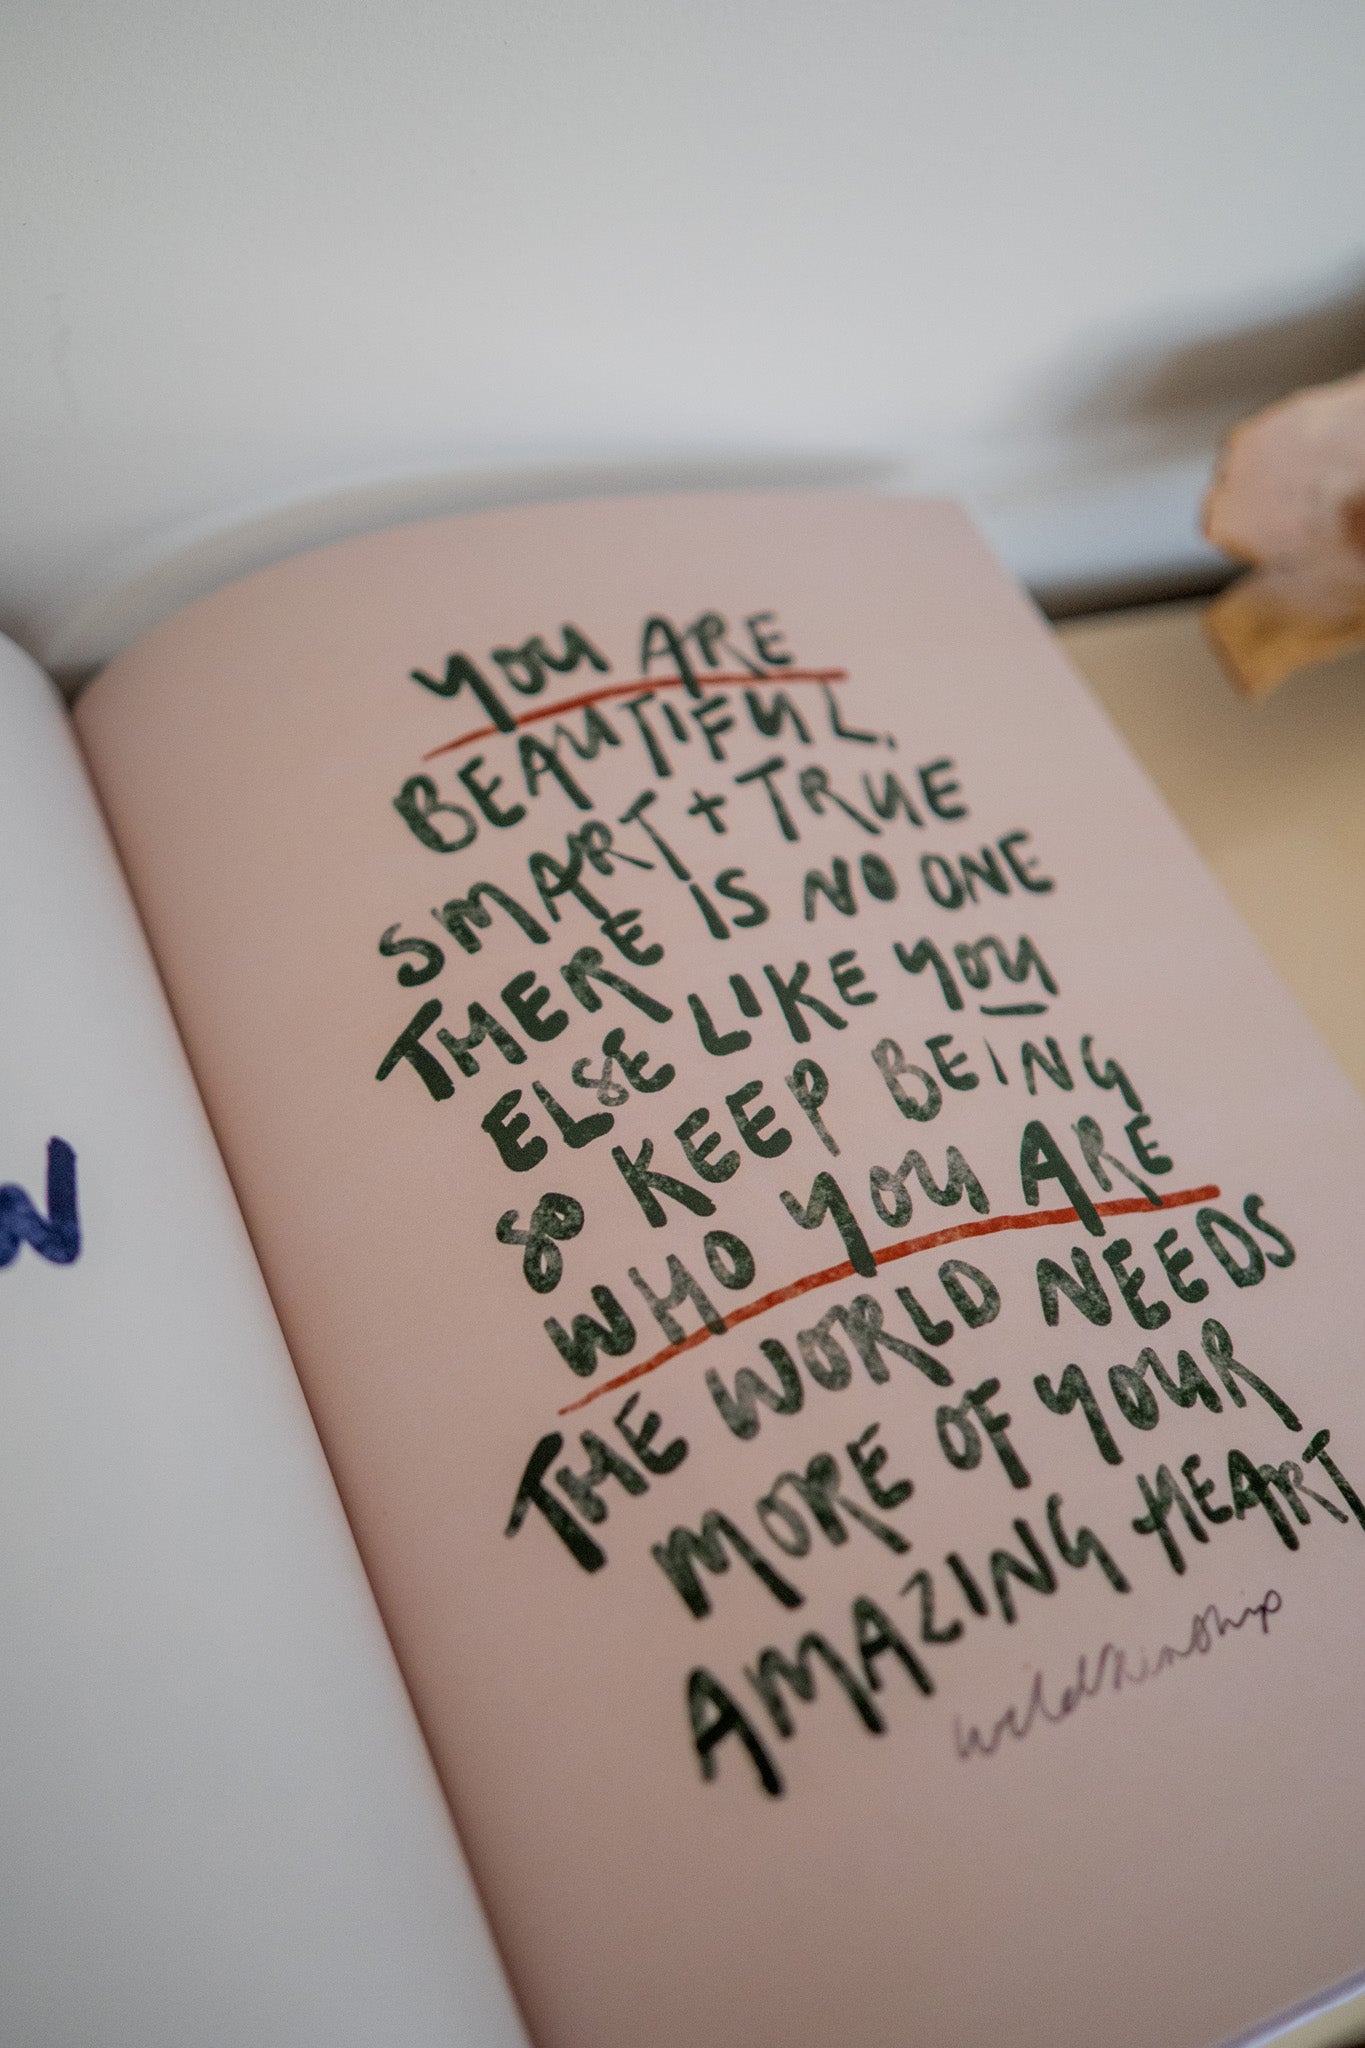 W
YOU ARE
BEAUTIFUL,
SMART + TRUE
THERE IS NO ONE
ELSE LIKE YOU
SO KEEP BEING
WHO YOU ARE
THE WORLD NEEDS
MORE OF YOUR
AMAZING HEART
wildkinship